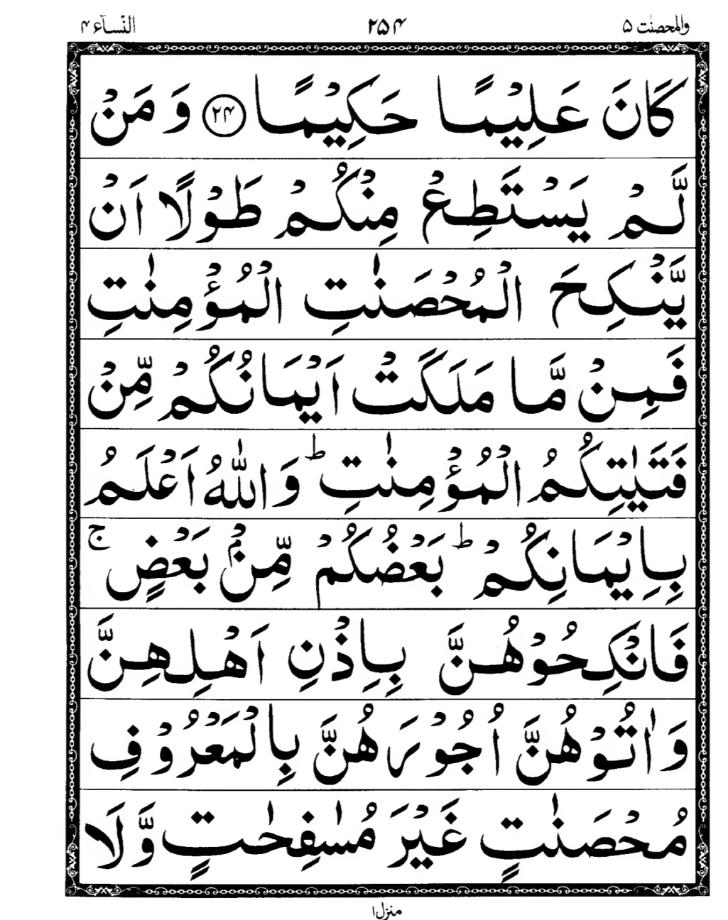 والمحصنت ۵ ۲۵۴ النسآء ۴
كَانَ عَلِيْمًا حَكِيْمًا ﴿۲۴﴾ وَ مَنْ
لَّمْ يَسْتَطِعْ مِنْكُمْ طَوْلًا اَنْ
يَّنْكِحَ الْمُحْصَنٰتِ الْمُؤْمِنٰتِ
فَمِنْ مَّا مَلَكَتْ اَيْمَانُكُمْ مِّنْ
فَتَيٰتِكُمُ الْمُؤْمِنٰتِ ؕ وَاللّٰهُ اَعْلَمُ
بِاِيْمَانِكُمْ ؕ بَعْضُكُمْ مِّنْۢ بَعْضٍ ۚ
فَانْكِحُوْهُنَّ بِاِذْنِ اَهْلِهِنَّ
وَاٰتُوْهُنَّ اُجُوْرَهُنَّ بِالْمَعْرُوْفِ
مُحْصَنٰتٍ غَيْرَ مُسٰفِحٰتٍ وَّلَا
منزل ۱